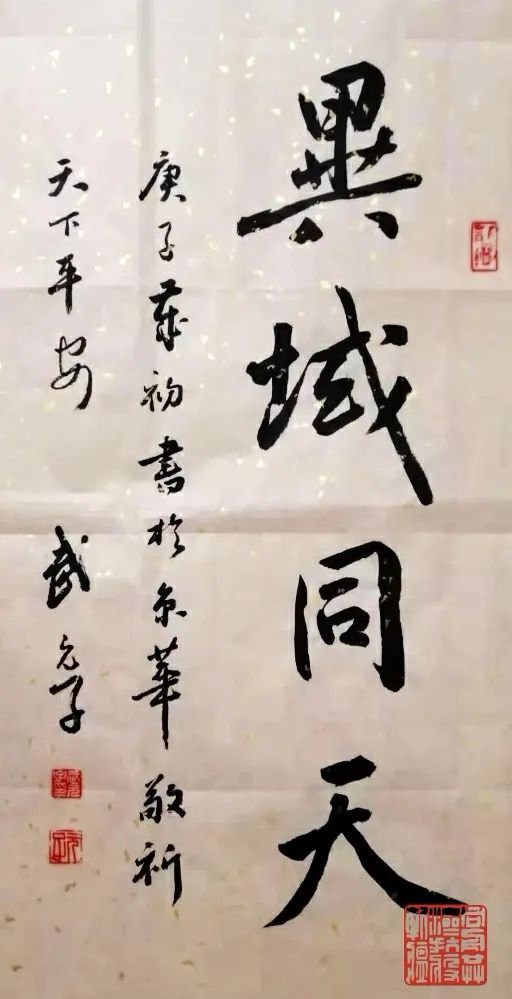 異域同天
庚子歲初書於京華敬祈
天下平安
武元子